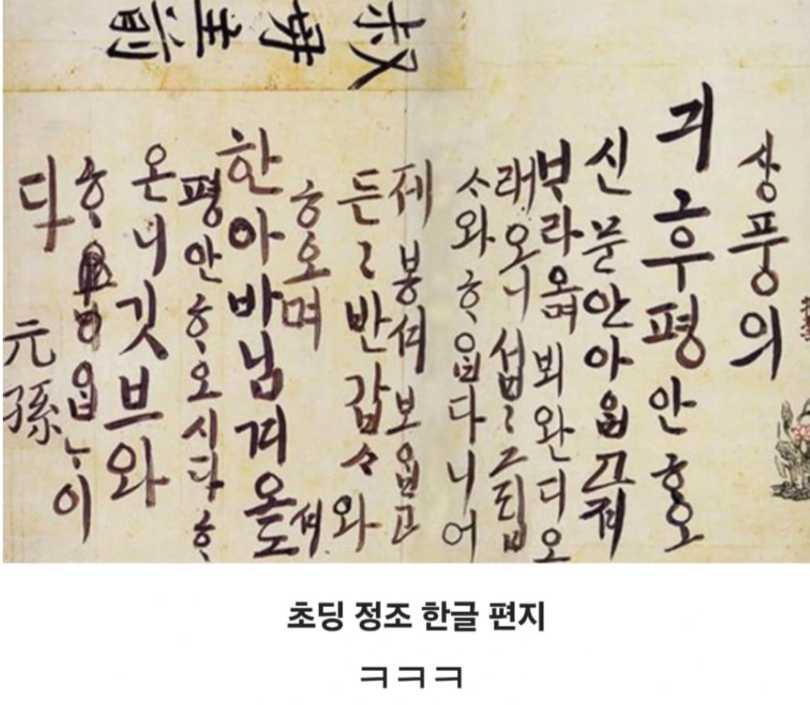 叔母主前
상풍의
긔후평안ᄒᆞ오
신문안아ᄋᆞᆸ고져
ᄇᆞ라오며뵈완디오
래오니섭〻그립
ᄉᆞ와ᄒᆞᄋᆞᆸ다니어
제봉셔보ᄋᆞᆸ고
든〻반갑ᄉᆞ와
ᄒᆞ오며
한아바님겨오셔도
평안ᄒᆞ오시다ᄒᆞ
온니깃브와
ᄒᆞᄋᆞᆸᄂᆞ이
다
元孫
초딩 정조 한글 편지
ㅋㅋㅋ